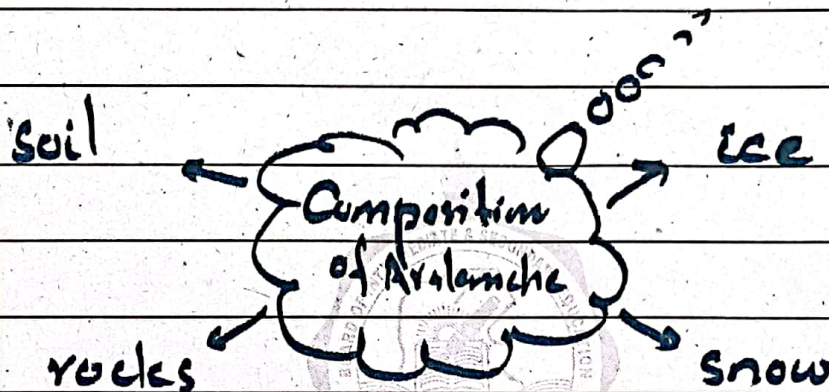 Soil
ice
Composition
of Avalanche
rocks
snow